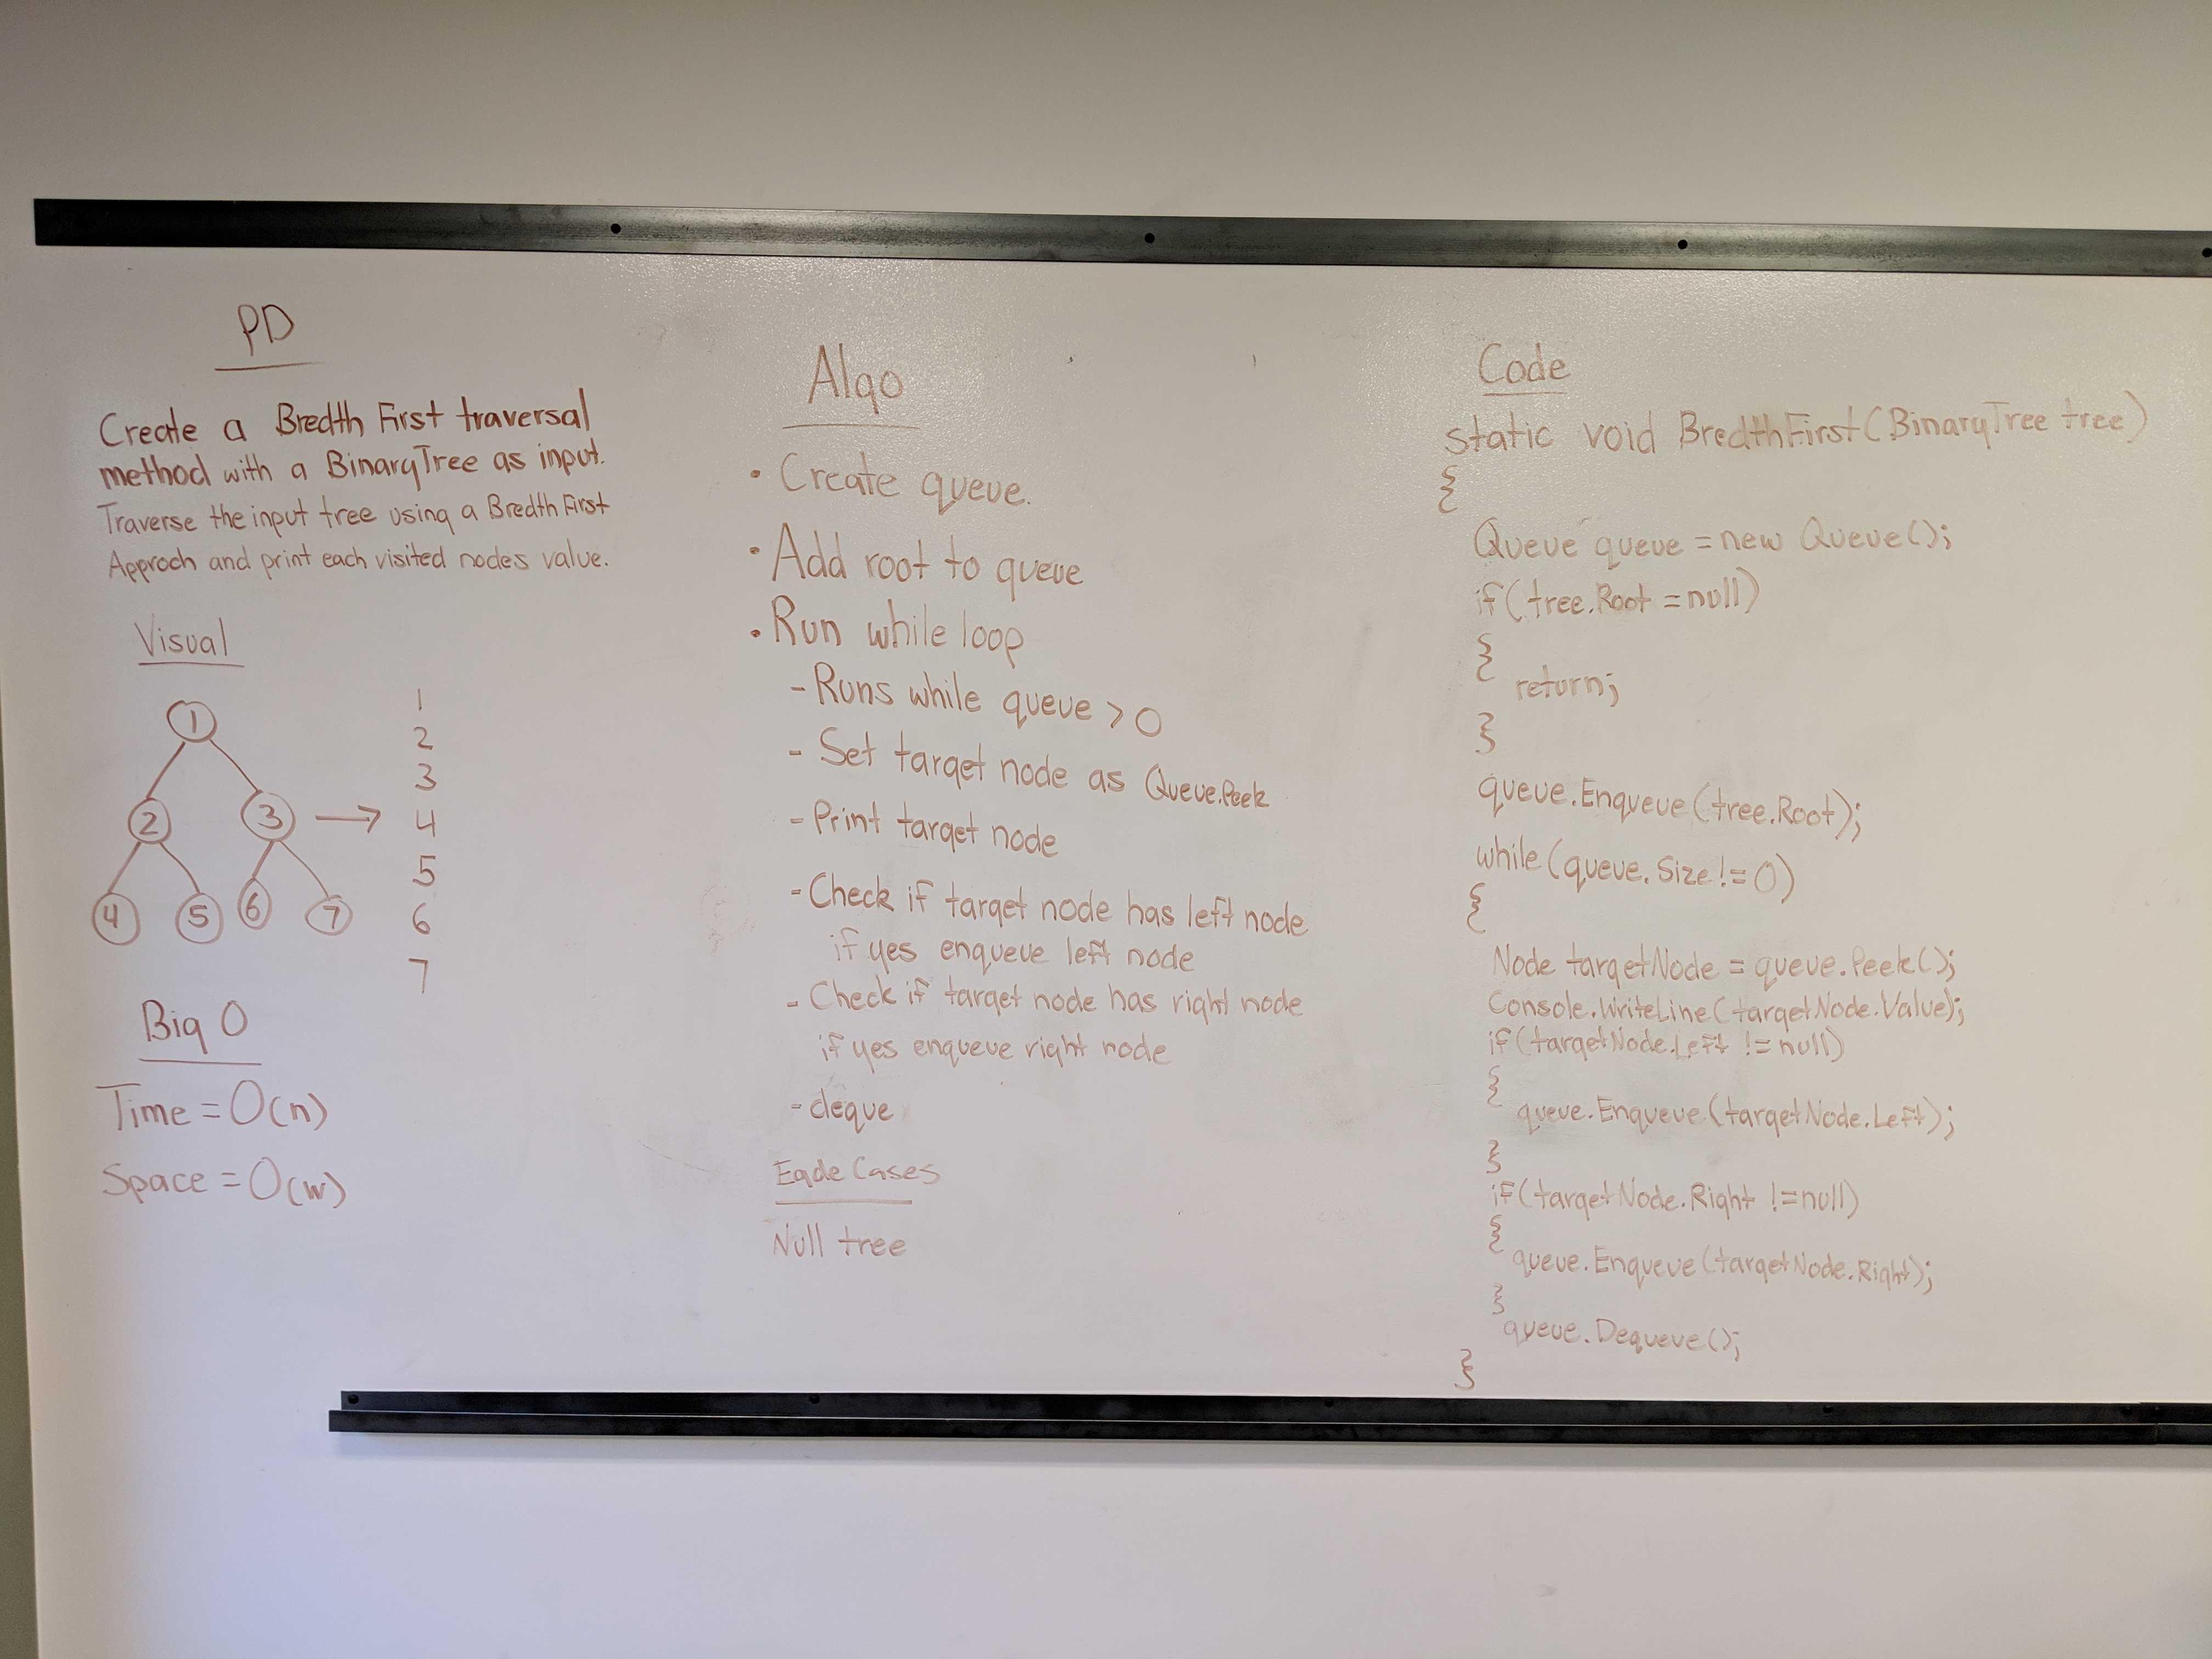 PD
Create a Bredth First traversal
method with a BinaryTree as input.
Traverse the input tree using a Bredth First
Approch and print each visited nodes value.
Visual
1
2
3
4
5
6
7
1
2
3
4
5
6
7
Big O
Time = O(n)
Space = O(w)
Algo
• Create queue.
• Add root to queue
• Run while loop
- Runs while queue > 0
- Set target node as Queue.Peek
- Print target node
- Check if target node has left node
if yes enqueue left node
- Check if target node has right node
if yes enqueue right node
- deque
Egde Cases
Null tree
Code
static void BredthFirst(BinaryTree tree)
{
Queue queue = new Queue();
if(tree.Root = null)
{
return;
}
queue.Enqueue(tree.Root);
while(queue.Size != 0)
{
Node targetNode = queue.Peek();
Console.WriteLine(targetNode.Value);
if(targetNode.Left != null)
{
queue.Enqueue(targetNode.Left);
}
if(targetNode.Right != null)
{
queue.Enqueue(targetNode.Right);
}
queue.Dequeue();
}